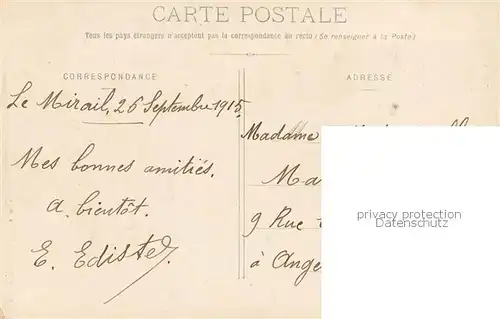 CARTE POSTALE
Tous les pays étrangers n'acceptent pas la correspondance au recto (Se renseigner à la Poste)
CORRESPONDANCE
ADRESSE
Le Mirail, 26 Septembre 1915
Mes bonnes amitiés.
a bientôt.
E. Ediste
Madame
Ma
9 Rue
à Ange
privacy protection
Datenschutz